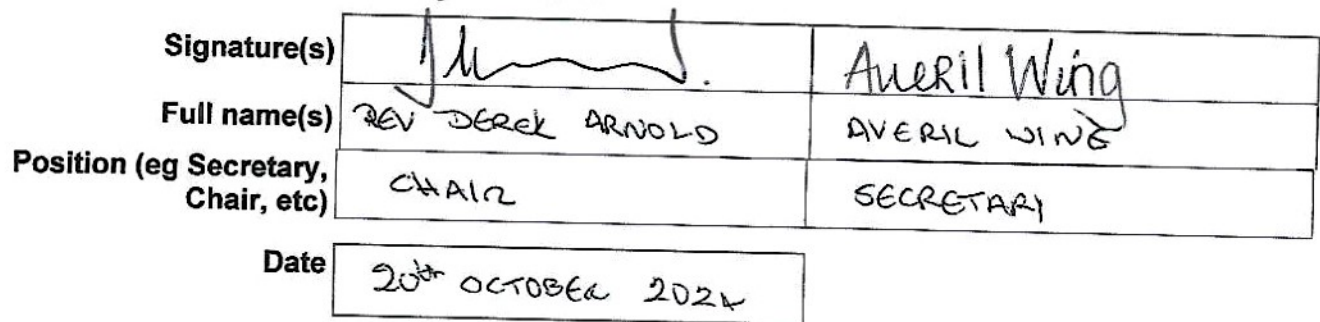 Signature(s) Averil Wing
Full name(s) REV DEREK ARNOLD AVERIL WING
Position (eg Secretary,
Chair, etc) CHAIR SECRETARY
Date 20th OCTOBER 2024